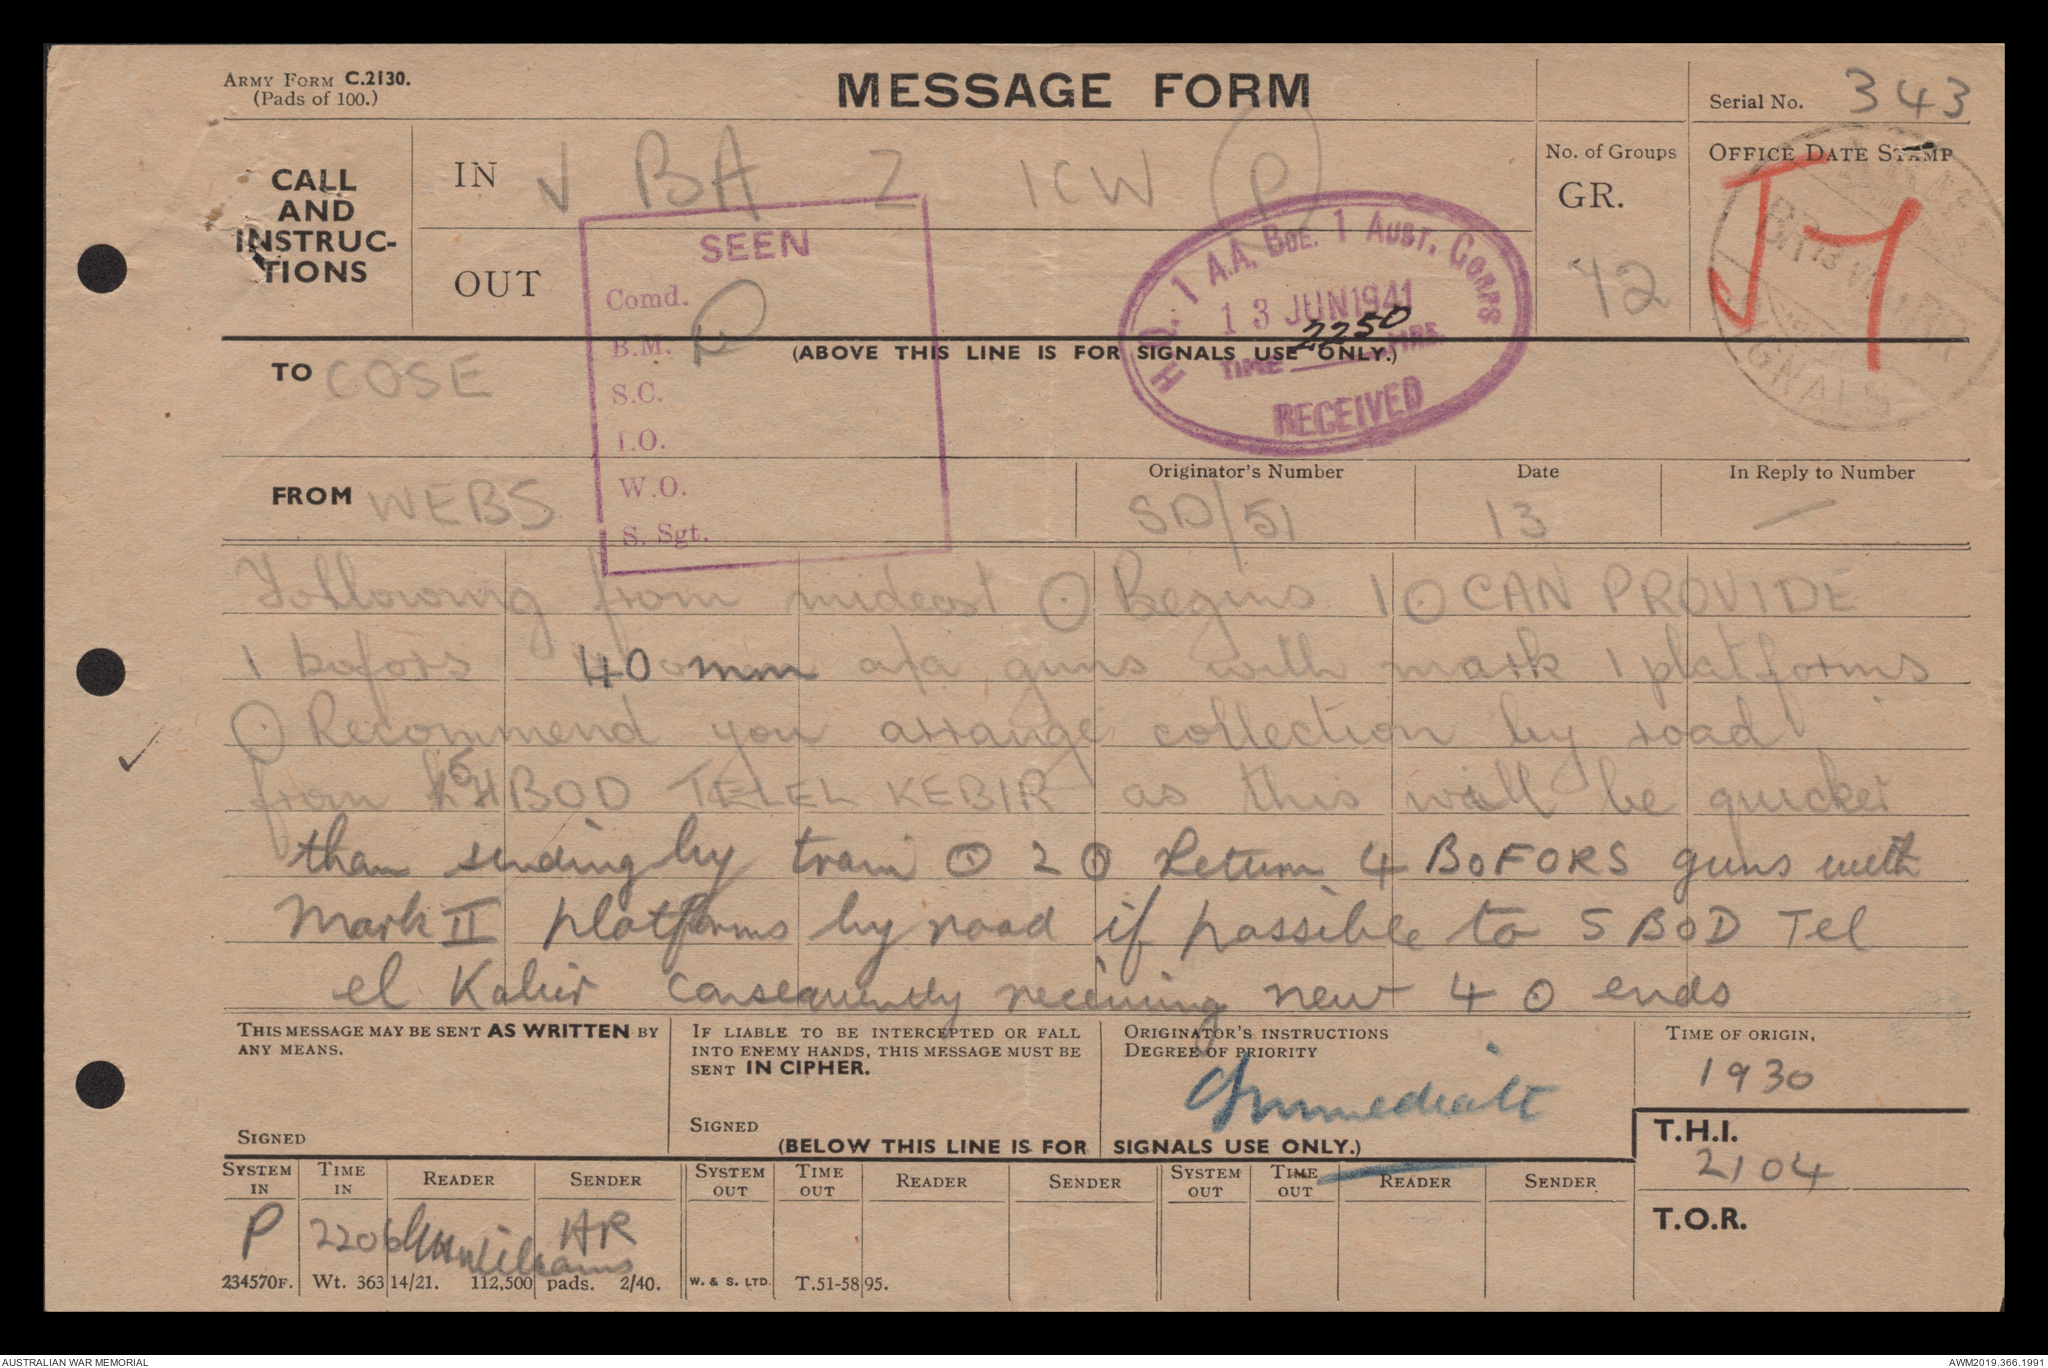 ARMY FORM C.2130.
(Pads of 100.)
MESSAGE FORM
Serial No. 343
CALL
AND
INSTRUC-
TIONS
IN V BA Z ICW (P)
OUT
No. of Groups
GR.
42
OFFICE DATE STAMP
J7
SIGNALS
SEEN
Comd.
B.M.
S.C.
I.O.
W.O.
S. Sgt.
H.Q. 1 A.A. BDE. 1 AUST. CORPS
13 JUN 1941
TIME 2250 HRS.
RECEIVED
(ABOVE THIS LINE IS FOR SIGNALS USE ONLY.)
TO COSE
FROM WEBS
Originator's Number
SD/51
Date
13
In Reply to Number
—
Following from mideast ⊙ Begins 1 ⊙ CAN PROVIDE
1 bofors 40 mm a/a guns with mark 1 platforms
⊙ Recommend you arrange collection by road
from 5 BOD TELEL KEBIR as this will be quicker
than sending by train ⊙ 2 ⊙ Return 4 BOFORS guns with
Mark II platforms by road if possible to 5 BOD Tel
el Kabir consequently receiving new 4 ⊙ ends
THIS MESSAGE MAY BE SENT AS WRITTEN BY
ANY MEANS.
SIGNED
IF LIABLE TO BE INTERCEPTED OR FALL
INTO ENEMY HANDS, THIS MESSAGE MUST BE
SENT IN CIPHER.
SIGNED
ORIGINATOR'S INSTRUCTIONS
DEGREE OF PRIORITY
Immediate
TIME OF ORIGIN.
1930
T.H.I.
2104
T.O.R.
(BELOW THIS LINE IS FOR SIGNALS USE ONLY.)
SYSTEM IN TIME IN READER SENDER SYSTEM OUT TIME OUT READER SENDER SYSTEM OUT TIME OUT READER SENDER
P 2206 Williams HR
234570F. Wt. 36314/21. 112,500 pads. 2/40. W. & S. LTD. T.51-5895.
AUSTRALIAN WAR MEMORIAL
AWM2019.366.1991